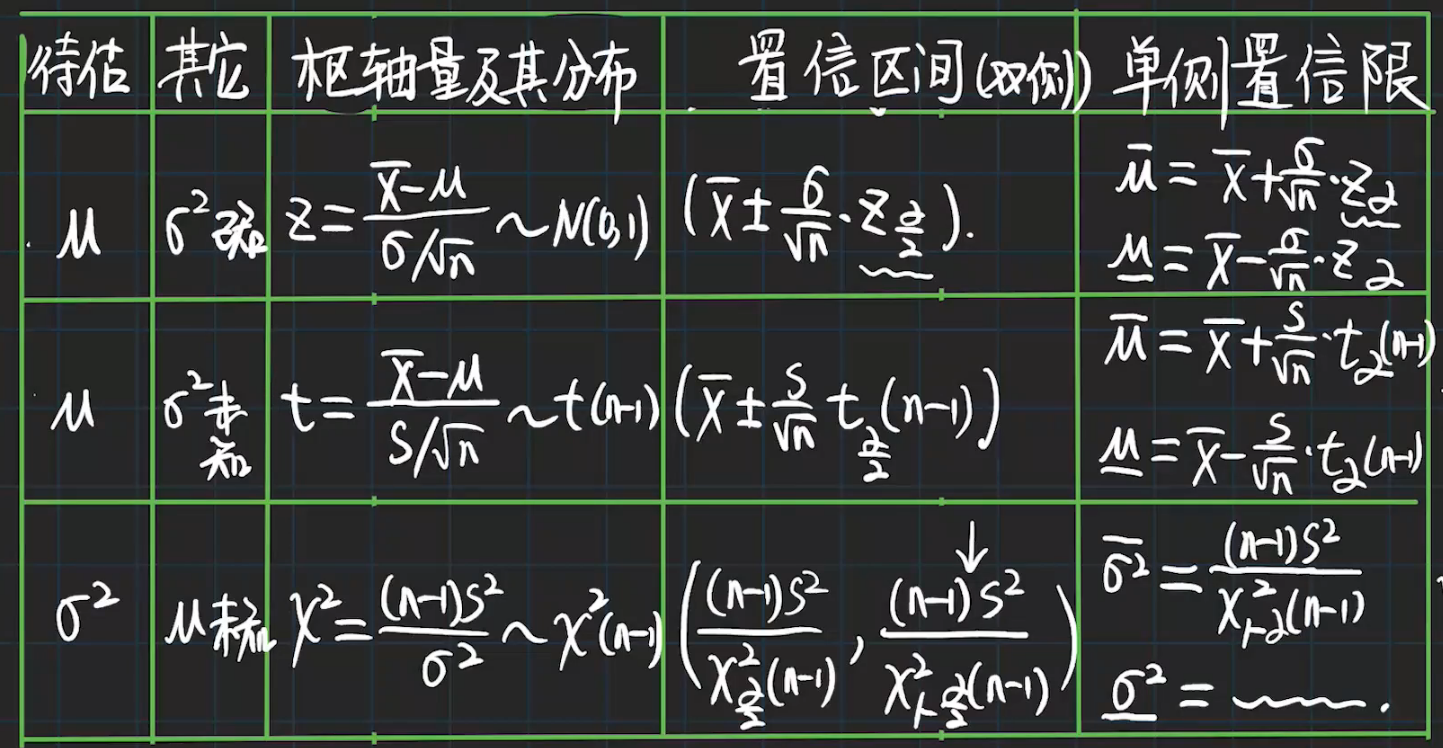 待估 其它 枢轴量及其分布 置信区间(双侧) 单侧置信限
μ σ²已知 z = (X̄-μ)/(σ/√n) ~ N(0,1) (X̄ ± σ/√n · z_{α/2}). μ̄ = X̄ + σ/√n · z_α
μ̲ = X̄ - σ/√n · z_α
μ σ²未知 t = (X̄-μ)/(S/√n) ~ t(n-1) (X̄ ± S/√n t_{α/2}(n-1)) μ̄ = X̄ + S/√n · t_α(n-1)
μ̲ = X̄ - S/√n · t_α(n-1)
σ² μ未知 χ² = (n-1)S²/σ² ~ χ²(n-1) ((n-1)S²/χ²_{α/2}(n-1), (n-1)S²/χ²_{1-α/2}(n-1)) σ̄² = (n-1)S²/χ²_{1-α}(n-1)
σ̲² = .